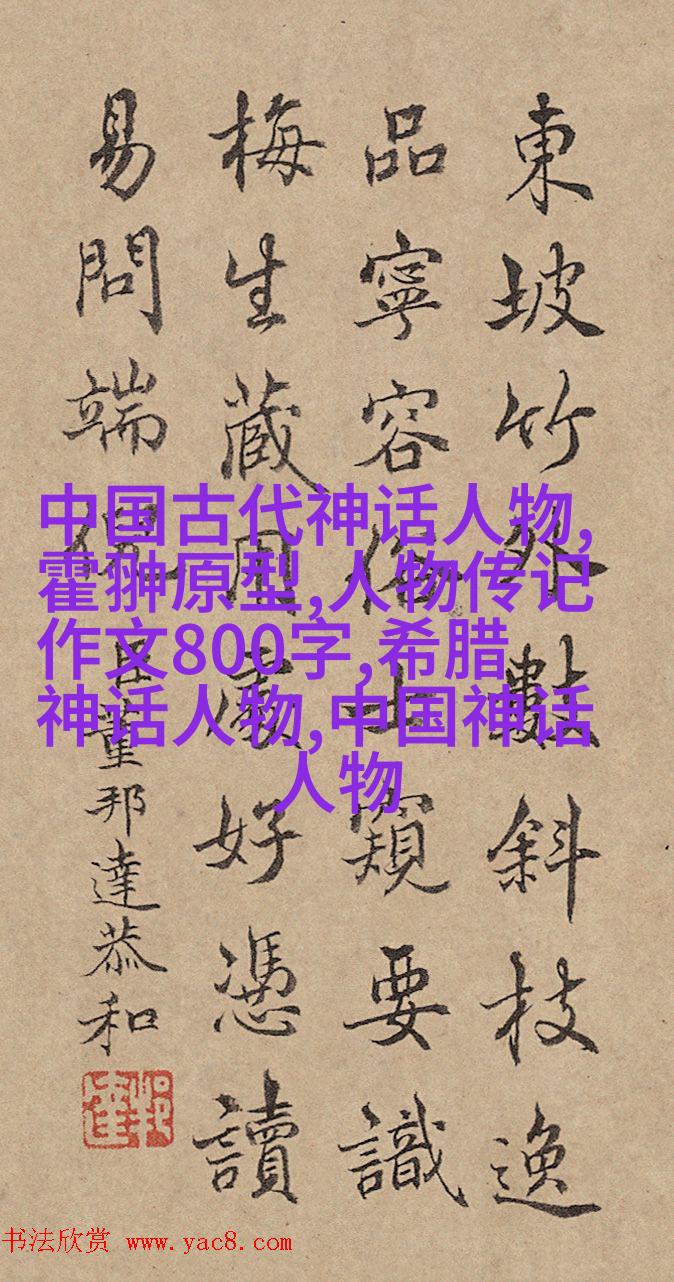 東坡竹外數斜枝逸
品寧容俗士窺要識
梅生藏用處好憑讀
易問端倪臣董邦達恭和
中国古代神话人物,
霍翀原型,人物传记
作文800字,希腊
神话人物,中国神话
人物
书法欣赏 www.yac8.com